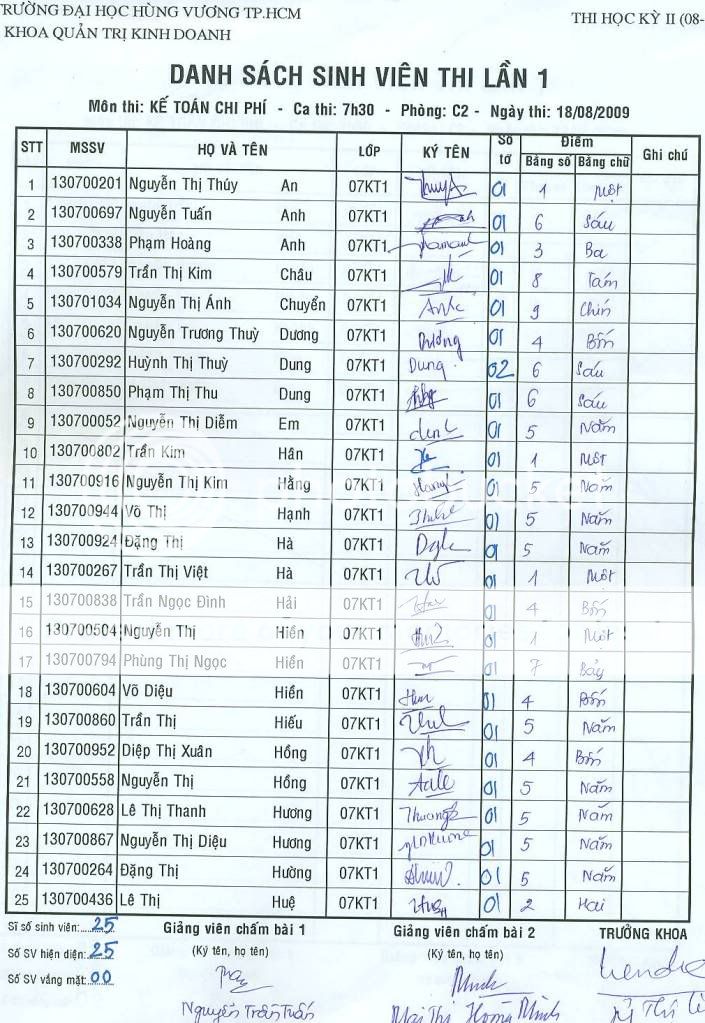 RƯỜNG ĐẠI HỌC HÙNG VƯƠNG TP.HCM THI HỌC KỲ II (08-
KHOA QUẢN TRỊ KINH DOANH
DANH SÁCH SINH VIÊN THI LẦN 1
Môn thi: KẾ TOÁN CHI PHÍ - Ca thi: 7h30 - Phòng: C2 - Ngày thi: 18/08/2009
STT MSSV HỌ VÀ TÊN LỚP KÝ TÊN Số tờ Điểm Ghi chú
Bằng số Bằng chữ
1 130700201 Nguyễn Thị Thúy An 07KT1 01 1 Một
2 130700697 Nguyễn Tuấn Anh 07KT1 01 6 Sáu
3 130700338 Phạm Hoàng Anh 07KT1 01 3 Ba
4 130700579 Trần Thị Kim Châu 07KT1 01 8 Tám
5 130701034 Nguyễn Thị Ánh Chuyển 07KT1 01 9 Chín
6 130700620 Nguyễn Trương Thuỳ Dương 07KT1 Dương 01 4 Bốn
7 130700292 Huỳnh Thị Thuỳ Dung 07KT1 Dung 02 6 Sáu
8 130700850 Phạm Thị Thu Dung 07KT1 01 6 Sáu
9 130700052 Nguyễn Thị Diễm Em 07KT1 01 5 Năm
10 130700802 Trần Kim Hân 07KT1 01 1 Một
11 130700916 Nguyễn Thị Kim Hằng 07KT1 01 5 Năm
12 130700944 Võ Thị Hạnh 07KT1 01 5 Năm
13 130700924 Đặng Thị Hà 07KT1 01 5 Năm
14 130700267 Trần Thị Việt Hà 07KT1 01 1 Một
15 130700838 Trần Ngọc Đình Hải 07KT1 01 4 Bốn
16 130700504 Nguyễn Thị Hiền 07KT1 01 1 Một
17 130700794 Phùng Thị Ngọc Hiền 07KT1 01 7 Bảy
18 130700604 Võ Diệu Hiền 07KT1 01 4 Bốn
19 130700860 Trần Thị Hiếu 07KT1 01 5 Năm
20 130700952 Diệp Thị Xuân Hồng 07KT1 01 4 Bốn
21 130700558 Nguyễn Thị Hồng 07KT1 01 5 Năm
22 130700628 Lê Thị Thanh Hương 07KT1 01 5 Năm
23 130700867 Nguyễn Thị Diệu Hương 07KT1 01 5 Năm
24 130700264 Đặng Thị Hường 07KT1 01 5 Năm
25 130700436 Lê Thị Huệ 07KT1 01 2 Hai
Sĩ số sinh viên: 25 Giảng viên chấm bài 1 Giảng viên chấm bài 2 TRƯỞNG KHOA
Số SV hiện diện: 25 (Ký tên, họ tên) (Ký tên, họ tên)
Số SV vắng mặt: 00
Minh
Nguyễn Trần Tuấn Mai Thị Hồng Minh